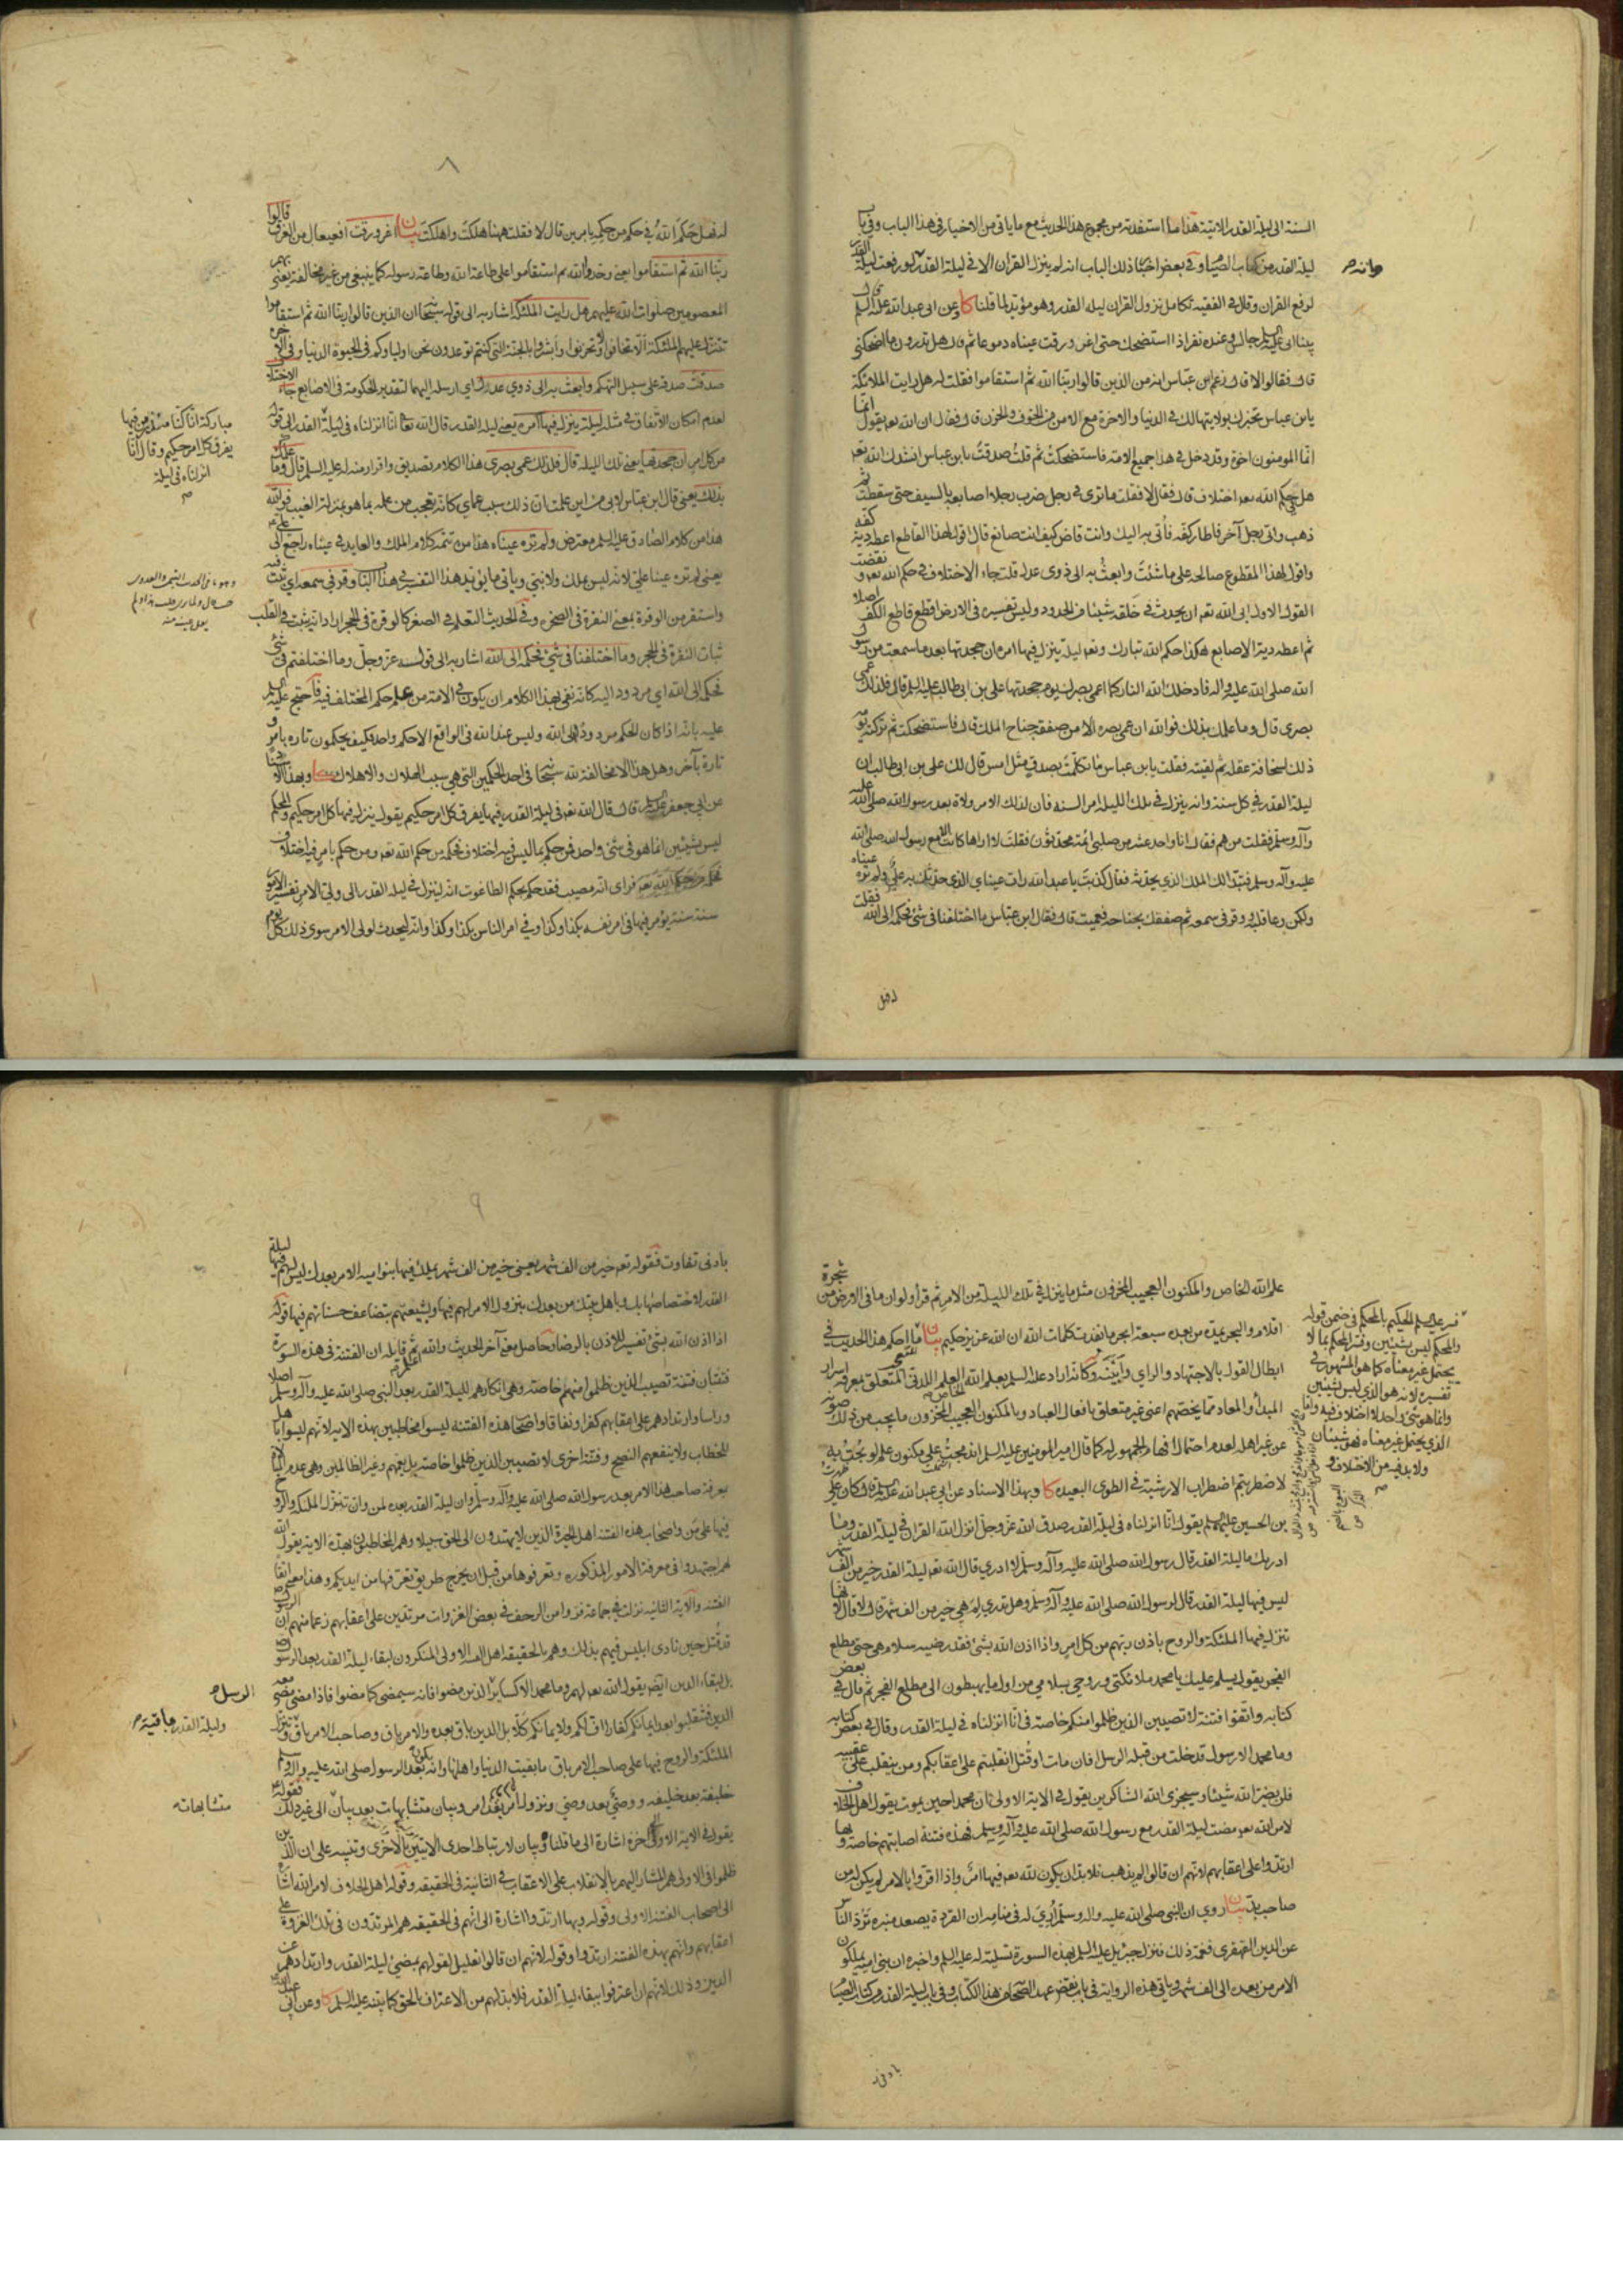 السنة الى ليلة القدر الاتية هذا ما استفدته من مجموع هذا الحديث مع ما ياتى من الاخبار فى هذا الباب وفى باب
ليلة القدر من كتاب الصيام وفى بعض اخبار ذلك الباب انه لم ينزل القران الا فى ليلة القدر ولو رفعت ليلة القدر
وانه م
لرفع القران وقال فى الفقيه تكامل نزول القران ليلة القدر وهو مؤيد لما قلنا كا وعن ابى عبد الله عليه السلم
بينا ابى عليه السلم جالس وعنده نفر اذا استضحك حتى اغرورقت عيناه دموعا ثم قال هل تدرون ما اضحكنى
قال فقالوا لا قال زعم ابن عباس انه من الذين قالوا ربنا الله ثم استقاموا فقلت له هل رايت الملائكة
يا بن عباس تخبرك بولايتها لك فى الدنيا والاخرة مع الامن من الخوف والحزن قال فقال ان الله تعه يقول انما
انما المومنون اخوة وقد دخل فى هذا جميع الامة فاستضحكت ثم قلت صدقت يا بن عباس انشدك الله تعه
هل فى حكم الله تعه اختلاف قال فقال لا فقلت ما ترى فى رجل ضرب رجلا اصابعه بالسيف حتى سقطت ثم
ذهب واتى رجل آخر فاطار كفه فاتى به اليك وانت قاض كيف انت صانع قال اقول لهذا القاطع اعطه دية كفه
واقول لهذا المقطوع صالحه على ما شئت وابعث به الى ذوى عدل قلت جاء الاختلاف فى حكم الله تعه و نقضت
القول الاول ابى الله تعه ان يحدث فى خلقه شيئا من الحدود وليس تفسيره فى الارض اقطع قاطع الكف اصلا
ثم اعطه دية الاصابع هكذا حكم الله تبارك وتعه ليلة ينزل فيها امره ان جحدتها بعد ما سمعت من رسول
الله صلى الله عليه واله فادخلك الله النار كما اعمى بصرك يوم جحدتها على بن ابى طالب عليه السلم قال فلذلك عمى
بصرى قال وما علمك بذلك فوالله ان عمى بصره الا من صفقة جناح الملك قال فاستضحكت ثم تركته يومه
ذلك لسخافة عقله ثم لقيته فقلت يا بن عباس ما تكلمت بصدق مثل امس قال لك على بن ابى طالب ان
ليلة القدر فى كل سنة وانه ينزل فى تلك الليلة امر السنة فان لذلك الامر ولاة بعد رسول الله صلى الله عليه
وآله وسلم فقلت من هم فقال انا واحد عشر من صلبى ائمة محدثون فقلت لا اراها كانت الا مع رسول الله صلى الله
عليه وآله وسلم فتبدا لك الملك الذى يحدثه فقال كذبت يا عبد الله رات عيناى الذى حدثك به على ولم تره عيناه
ولكن وعا قلبه ووقر فى سمعه ثم صفقك بجناحه فعميت قال فقال ابن عباس ما اختلفنا فى شئ فحكمه الى الله فقلت
له فهل حكم الله فى حكم من حكمه بامرين قال لا فقلت ههنا هلكت واهلكت بيان اغرورقت افعيعال من الغرق قالوا
ربنا الله ثم استقاموا يعنى وحدوا الله ثم استقاموا على طاعة الله وطاعة رسوله كما ينبغى من غير مخالفة يعنى بهم
المعصومين صلوات الله عليهم هل رايت الملئكة اشار به الى قوله سبحا ان الذين قالوا ربنا الله ثم استقاموا
تتنزل عليهم الملئكة الا تخافوا ولا تحزنوا وابشروا بالجنة التى كنتم توعدون نحن اولياؤكم فى الحيوة الدنيا وفى الاخرة
صدقت صدقه على سبيل التهكم وابعث به الى ذوى عدل اى ارسله اليهما لتقدير الحكومة فى الاصابع جاء الاختلاف
لعدم امكان الاتفاق فى مثله ليلة ينزل فيها امره يعنى ليلة القدر قال الله تعا انا انزلناه فى ليلة القدر الى قوله
مباركة انا كنا منذرين فيها
يفرق كل امر حكيم وقال انا
انزلناه فى ليلة
م
من كل امر ان جحدتها يعنى تلك الليلة قال فلذلك عمى بصرى هذا الكلام تصديق واقرار منه له عليه السلم قال وما علمك
بذلك يعنى قال ابن عباس لابى من اين علمت ان ذلك سبب عماى كانه تعجب من علمه بما هو بمنزلة الغيب فوالله
هذا من كلام الصادق عليه السلم معترض ولم تره عيناه هذا من تتمة كلام الملك والعايد فى عيناه راجع الى على ع
يعنى لم تره عينا على لانه ليس بملك ولا بنبى وياتى ما يؤيد هذا التفسير فى هذا الباب وقر فى سمعه اى ثبت فيه
واستقر من الوقرة بمعنى النقرة فى الصخرة وفى الحديث التعلم فى الصغر كالوقرة فى الحجر اراد انه يثبت فى القلب
ثبات النقرة فى الحجر وما اختلفنا فى شئ فحكمه الى الله اشار به الى قوله عز وجل وما اختلفتم فى شئ
فحكمه الى الله اى مردود اليه كانه نفى بهذا الكلام ان يكون فى الامة من علم حكم المختلف فيه فاحتج عليه السلم
عليه بانه اذا كان الحكم مردودا الى الله وليس عند الله فى الواقع الا حكم واحد فكيف يحكمون تارة بامر و
تارة بآخر وهل هذا الا مخالفة لله سبحا فى احد الحكمين التى هى سبب الهلاك والاهلاك كا وبهذا الاسناد
عن ابى جعفر عليه السلم قال قال الله تعه فى ليلة القدر فيها يفرق كل امر حكيم يقول ينزل فيها كل امر حكيم والمحكم
ليس بشيئين انما هو شئ واحد فمن حكم بما ليس فيه اختلاف فحكمه من حكم الله تعه ومن حكم بامر فيه اختلاف
فراى انه مصيب فقد حكم بحكم الطاغوت انه لينزل فى ليلة القدر الى ولى الامر تفسير الامور
سنة سنة يؤمر فيها فى امر نفسه بكذا وكذا وفى امر الناس بكذا وكذا وانه ليحدث لولى الامر سوى ذلك كل يوم
علم الله الخاص والمكنون العجيب المخزون مثل ما ينزل فى تلك الليلة من الامر ثم قرأ ولو ان ما فى الارض من شجرة
اقلام والبحر يمده من بعده سبعة ابحر ما نفدت كلمات الله ان الله عزيز حكيم بيان ما احكم هذا الحديث فى
ابطال القول بالاجتهاد والراى وابينه وكانه اراد عليه السلم بعلم الله العلم اللدنى المتعلق بمعرفة اسرار
المبدأ والمعاد مما يخصهم اعنى غير متعلق بافعال العباد وبالمكنون العجيب المخزون ما يجب من ذلك صونه
عن غير اهله لعدم احتمال افهام الجمهور له كما قال امير المومنين عليه السلم اندمجت على مكنون علم لو بحت به
لاضطربتم اضطراب الارشية فى الطوى البعيدة كا وبهذا الاسناد عن ابى عبد الله عليه السلم قال كان على
بن الحسين عليهما السلم يقول انا انزلناه فى ليلة القدر صدق الله عز وجل انزل الله القران فى ليلة القدر وما
ادريك ما ليلة القدر قال رسول الله صلى الله عليه وآله وسلم لا ادرى قال الله تعه ليلة القدر خير من الف شهر
ليس فيها ليلة القدر قال لرسول الله صلى الله عليه وآله وسلم وهل تدرى لم هى خير من الف شهر قال لا قال لانها
تنزل فيها الملئكة والروح باذن ربهم من كل امر واذا اذن الله بشئ فقد رضيه سلام هى حتى مطلع
الفجر يقول يسلم عليك يا محمد ملائكتى وروحى بسلامى من اول ما يهبطون الى مطلع الفجر ثم قال فى بعض
كتابه واتقوا فتنة لا تصيبن الذين ظلموا منكم خاصة فى انا انزلناه فى ليلة القدر وقال فى بعض كتابه
وما محمد الا رسول قد خلت من قبله الرسل افان مات او قتل انقلبتم على اعقابكم ومن ينقلب على عقبيه
فلن يضر الله شيئا وسيجزى الله الشاكرين يقول فى الاية الاولى ان محمدا حين يموت يقول اهل الخلاف
لامر الله تعه مضت ليلة القدر مع رسول الله صلى الله عليه وآله وسلم فهذه فتنة اصابتهم خاصة وبها
ارتدوا على اعقابهم لانهم ان قالوا لم يذهب فلا بد ان يكون لله تعه فيها امر واذا اقروا بالامر لم يكن له من
صاحب بد بيان روى ان النبى صلى الله عليه واله وسلم أرى له فى منامه ان القردة يصعد منبره ترد الناس
عن الدين القهقرى فغمه ذلك فنزل جبرئيل عليه السلم بهذه السورة تسلية له عليه السلم واخبره ان بنى امية يملكون
الامر من بعده الى الف شهر وياتى هذه الرواية فى باب نقض عهد الصحابة من هذا الكتاب وفى باب ليلة القدر من كتاب الصيام
فسر عليه السلم الحكيم بالمحكم فى ضمن قوله
والمحكم ليس بشيئين وفسر المحكم بما لا
يحتمل غير معناه كما هو المشهور فى
تفسيره لانه هو الذى ليس بشيئين
وانما هو شئ واحد لا اختلاف فيه واما
الذى يحتمل غير معناه فهو شيئان
ولا بد فيه من الاختلاف
بادنى تفاوت فقوله تعه خير من الف شهر يعنى خير من الف شهر يملك فيها بنو امية الامر بعدك ليس لهم فيها ليلة
القدر لاختصاصها بك وباهل بيتك من بعدك بنزول الامر لهم فيها ولشيعتهم بتضاعف حسناتهم فيها قوله
اذا اذن الله بشئ تفسير للاذن بالرضا وحاصل معنى آخر الحديث والله اعلم ثم قايله ان الفتنة فى هذه السورة
فتنتان فتنة تصيب الذين ظلموا منهم خاصة وهى انكارهم لليلة القدر بعد النبى صلى الله عليه وآله وسلم اصلا
وراسا وارتدادهم على اعقابهم كفرا ونفاقا واصحاب هذه الفتنة ليسوا مخاطبين بهذه الاية لانهم ليسوا اهلا
للخطاب ولا ينفعهم النصح وفتنة اخرى لا تصيبن الذين ظلموا خاصة بل تعمهم وغير الظالمين وهى عدم
بمعرفة صاحب هذا الامر بعد رسول الله صلى الله عليه وآله وسلم وان ليلة القدر بعده لمن وان تنزل الملئكة والروح
فيها على من واصحاب هذه الفتنة اهل الحيرة الذين لا يهتدون الى الحق سبيلا وهم المخاطبون بهذه الاية يقول الله
لهم اجتهدوا فى معرفة الامور المذكورة وتعرفوها من قبل ان يخرج طريق تعرفها من ايديكم وهذا معنى اتقاء
الفتنة والاية الثانية نزلت فى جماعة فروا من الزحف فى بعض الغزوات مرتدين على اعقابهم زعما منهم ان الرسول
قد قتل حين نادى ابليس فيهم بذلك وهم بالحقيقة اهل الفتنة الاولى المنكرون لبقاء ليلة القدر بعد الرسول
بل لبقاء الدين ايضه يقول الله تعه لهم وما محمد الا كساير الذين مضوا فانه سيمضى كما مضوا فاذا مضى مضى معه
الرسل م
الدين فتنقلبوا بعد ايمانكم كفارا اف لكم ولايمانكم كلا بل الدين باق بعده والامر باق وصاحب الامر باق وتنزل
وليلة القدر باقية م
الملئكة والروح فيها على صاحب الامر باق ما بقيت الدنيا واهلها وانه يكون بعد الرسول صلى الله عليه وآله وسلم
خليفة بعد خليفة ووصى بعد وصى ونزول امر بعد امر وبيان متشابهات بعد بيان الى غير ذلك فقوله
متشابهات
يقول فى الاية الاولى الى آخره اشارة الى ما قلناه وبيان لارتباط احدى الايتين بالاخرى وتنبيه على ان الذين
ظلموا فى الاولى هم المشار اليهم بالانقلاب على الاعقاب فى الثانية فى الحقيقة وقوله اهل الخلاف لامر الله اشارة
الى اصحاب الفتنة الاولى وقوله وبها ارتدوا اشارة الى انهم فى الحقيقة هم المرتدون فى تلك الغزوة على
اعقابهم وانهم بهذه الفتنة ارتدوا وقوله لانهم ان قالوا تعليل لقولهم بمضى ليلة القدر وارتدادهم عن
الدين وذلك لانهم ان اعترفوا ببقاء ليلة القدر فلا بد لهم من الاعتراف بالحق كما بينه عليه السلم كا وعن ابى عبد الله